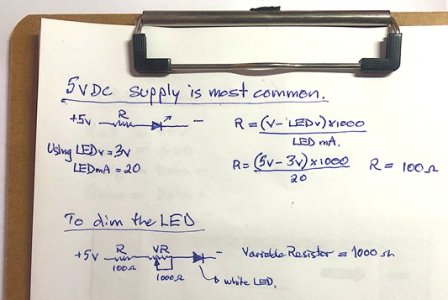 5VDC supply is most common.
+5v R -
R = (V - LEDv) x 1000
LED mA.
Using LEDv = 3v
LEDmA = 20
R = (5v - 3v) x 1000
20
R = 100Ω
To dim the LED
+5v R VR -
100Ω 1000Ω
white LED.
Variable Resistor = 1000Ω